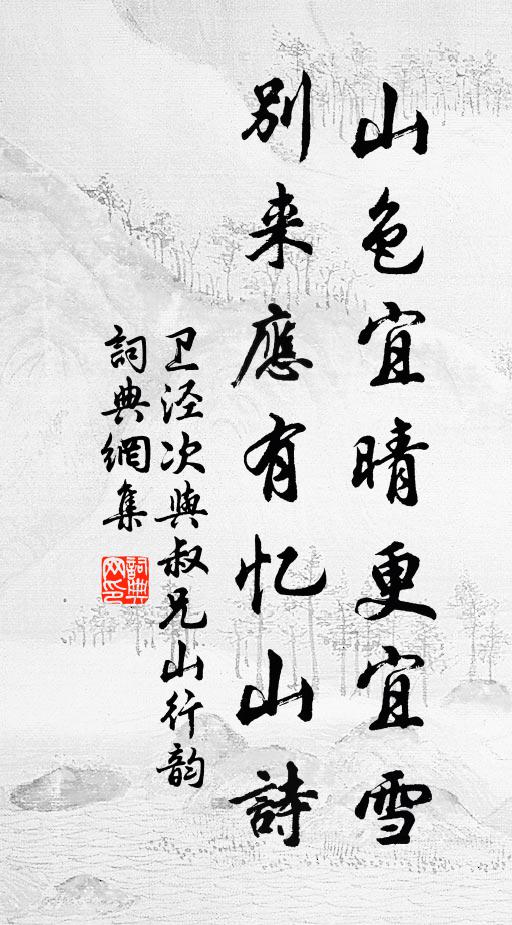 山色宜晴更宜雪
别来應有忆山詩
卫泾次與叔兄山行韵
詞典網集
詞典
网印